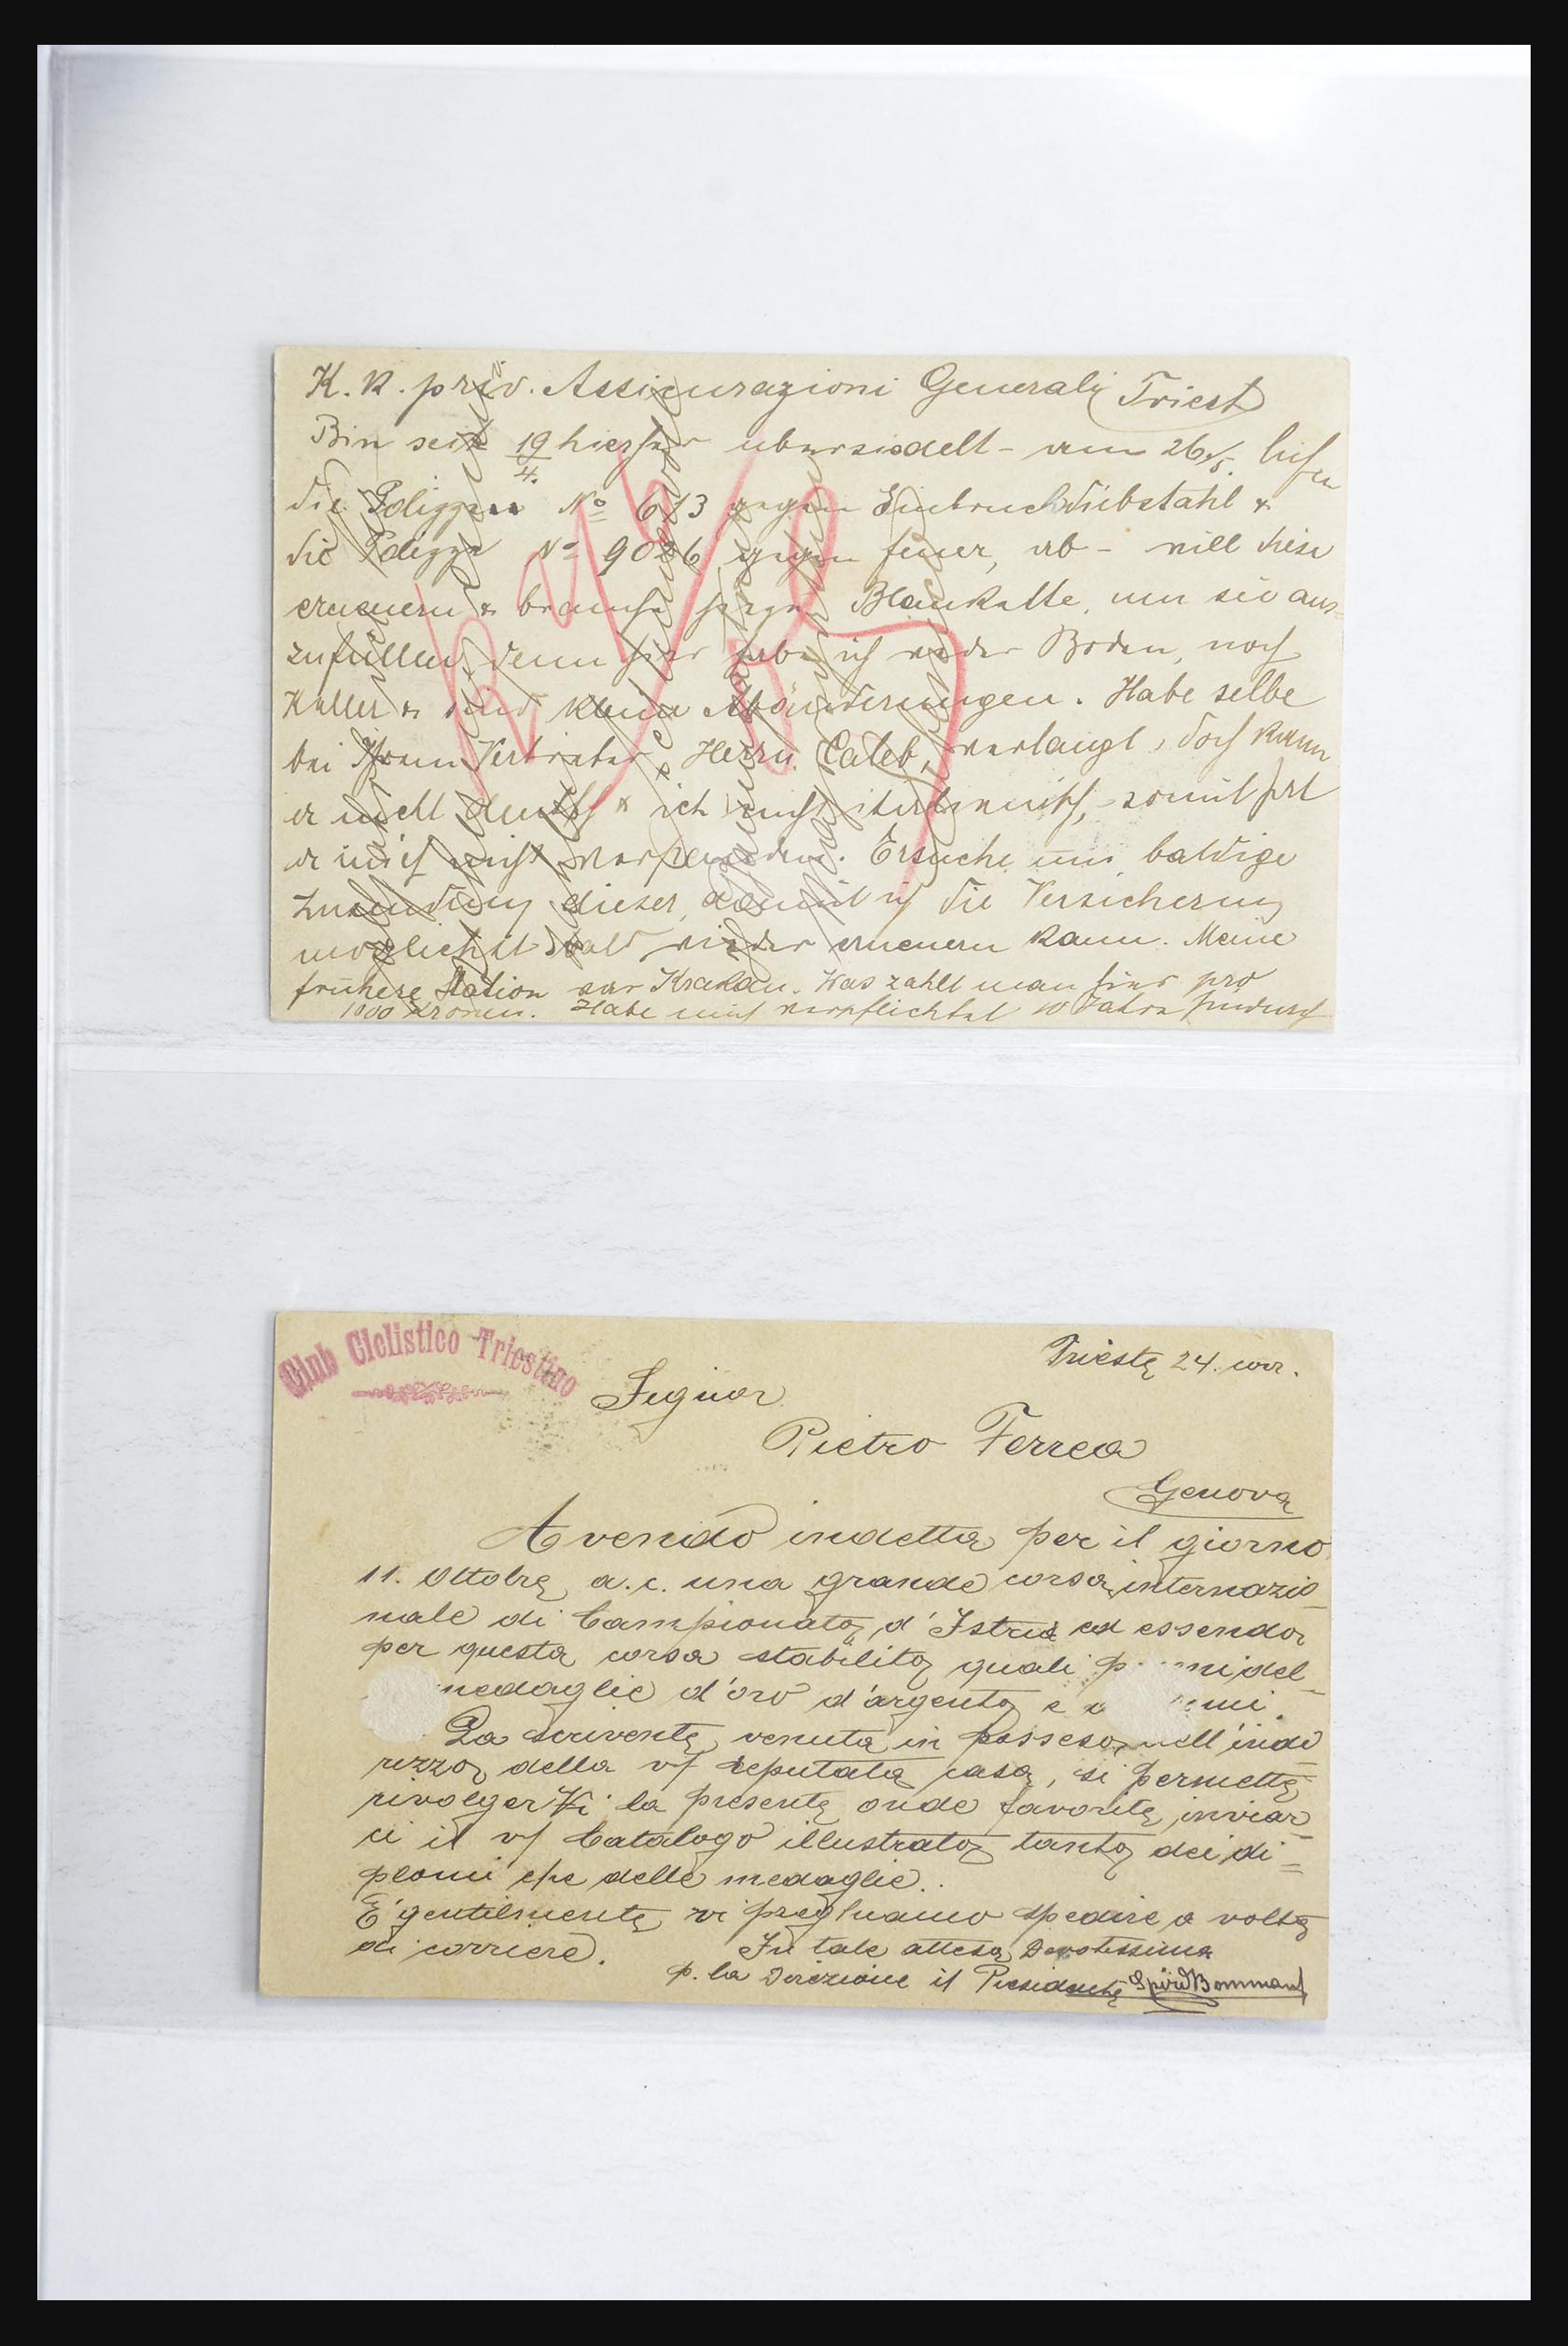 K. K. priv. Assicurazioni Generali Triest
Bin seit 19/4. hierher übersiedelt – am 26/5. liefen
die Polizzen No 613 gegen Einbruchdiebstahl &
die Polizze No 9026 gegen Feuer, ab – will diese
erneuern & brauche hiezu Blankette, um sie aus-
zufüllen, denn hier habe ich weder Boden, noch
Keller & sind kleine Abänderungen. Habe selbe
bei Ihrem Vertreter, Herrn Caleb, verlangt, doch kann
er nicht deutsch & ich nicht italienisch, – somit hat
er mich nicht verstanden. Ersuche um baldige
Zusendung dieser, damit ich die Versicherung
möglichst bald wieder erneuern kann. Meine
frühere Station war Krakau. Was zahlt man hier pro
1000 Kronen. Habe mich verpflichtet 10 Jahre hindurch
Club Ciclistico Triestino
Trieste 24. corr.
Signor
Pietro Ferrea
Genova
Avendo indetta per il giorno
11. Ottobre a. c. una grande corsa internazio-
nale di Campionato d'Istria ed essendo
per questa corsa stabilito quali del-
medaglie d'oro d'argento e
La scrivente venuta in possesso dell'indi
rizzo della v/ reputata casa, si permette
rivolgerVi la presente onde favorite inviar-
ci il v/ Catalogo illustrato tanto dei di=
plomi che delle medaglie.
E gentilmente vi preghiamo spedire a volta
di corriere. In tale attesa Devotissima
p. la Direzione il Presidente